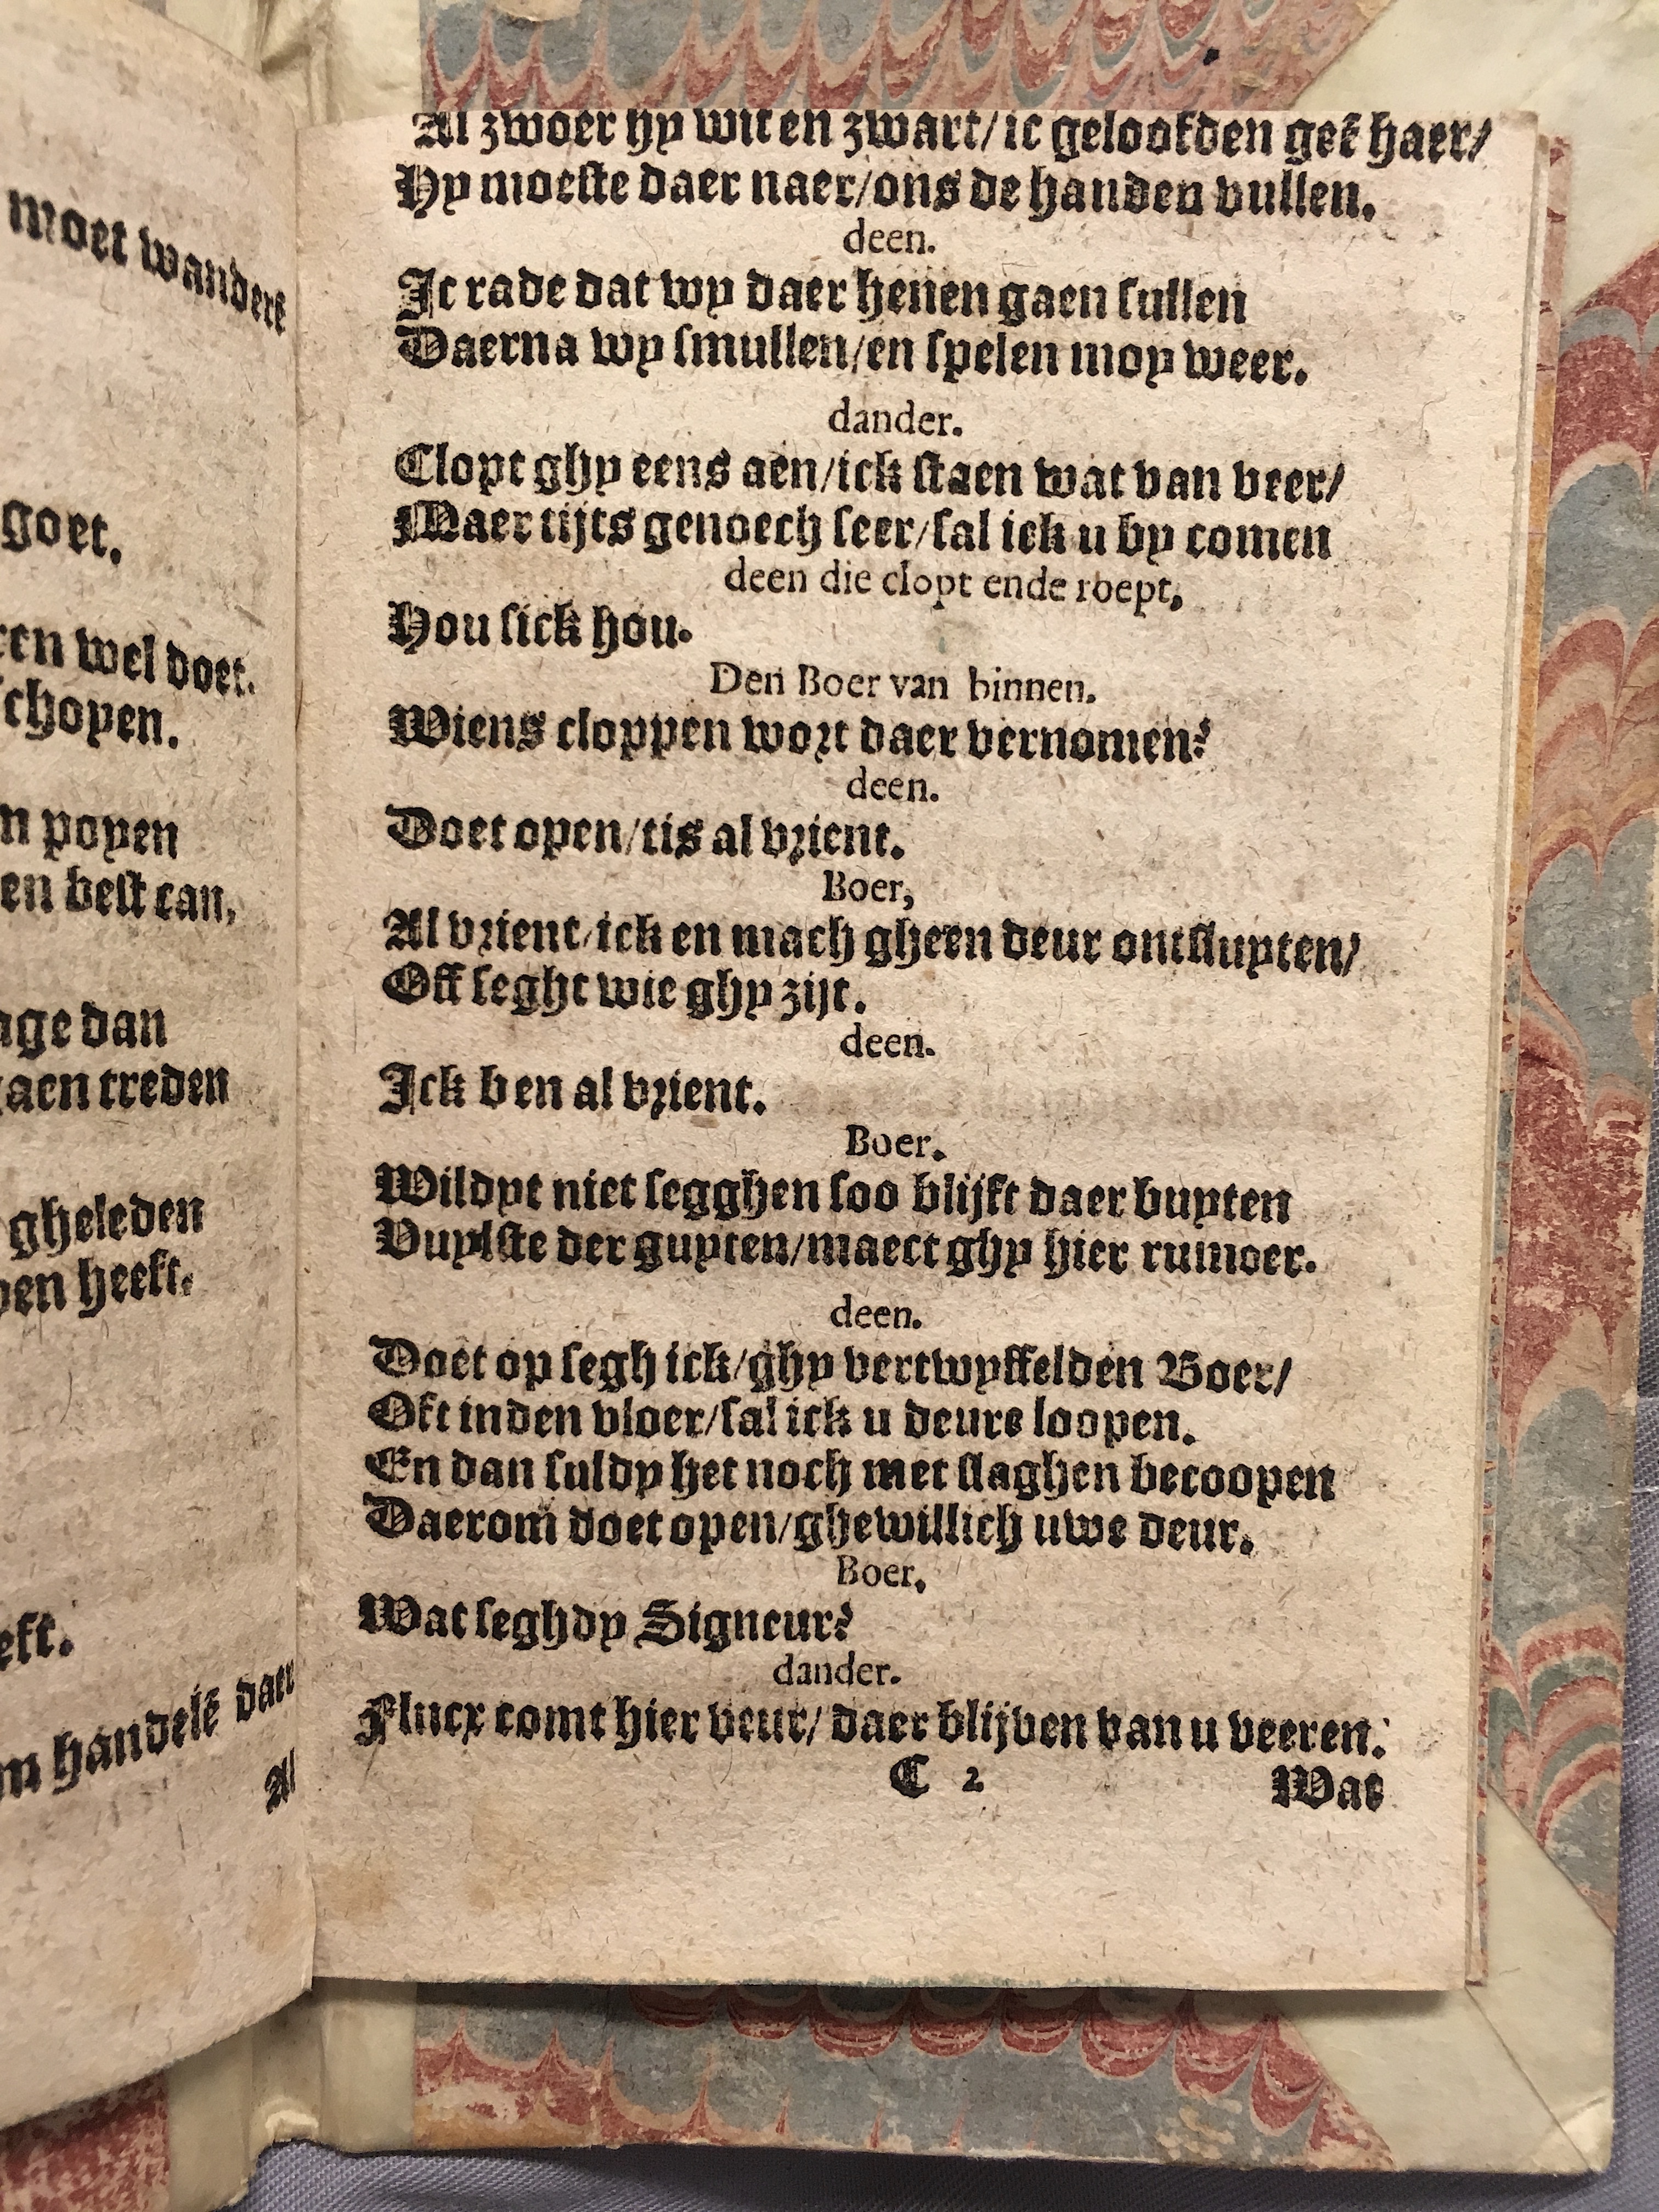 moet wanderē
goet.
en wel doet.
schopen.
n popen
en best can,
age dan
aen treden
gheleden
pen heeft.
eft.
m handelē daer
Al
Al zwoer hy wit en zwart/ ic geloofden geē haer/
Hy moeste daer naer/ons de handen vullen.
deen.
Ic rade dat wy daer henen gaen sullen
Daerna wy smullen/en spelen moy weer.
dander.
Clopt ghy eens aen/ick staen wat van veer/
Maer tijts genoech seer/sal ick u by comen
deen die clopt ende roept,
Hou sick hou.
Den Boer van binnen.
Wiens cloppen wort daer vernomen?
deen.
Doet open/tis al vrient.
Boer,
Al vrient/ick en mach gheen deur ontsluyten/
Off seght wie ghy zijt.
deen.
Ick ben al vrient.
Boer.
Wildyt niet segghen soo blijft daer buyten
Vuylste der guyten/maect ghy hier rumoer.
deen.
Doet op segh ick/ghy vertwyffelden Boer/
Oft inden vloer/sal ick u deure loopen.
En dan suldy het noch met slaghen becoopen
Daerom doet open/ghewillich uwe deur.
Boer.
Wat seghdy Signeur?
dander.
Flucx comt hier veur/ daer blijven van u veeren.
C 2
Wat